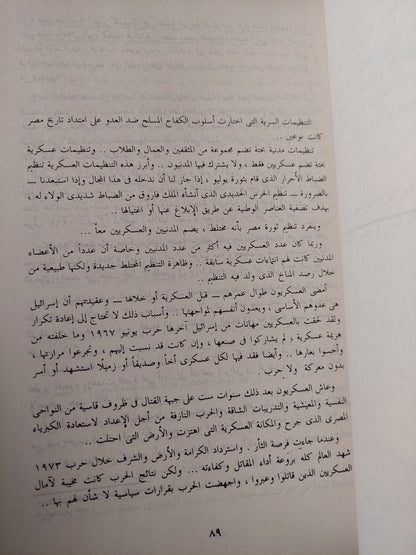 التنظيمات السرية التى اختارت أسلوب الكفاح المسلح ضد العدو على امتداد تاريخ مصر
كانت نوعين ..
تنظيمات مدنية بحتة تضم مجموعة من المثقفين والعمال والطلاب .. وتنظيمات عسكرية
بحتة تضم عسكريين فقط ، ولا يشترك فيها المدنيون .. وأبرز هذه التنظيمات العسكرية تنظيم
الضباط الأحرار الذى قام بثورة يوليو ، إذا جاز لنا أن ندخله فى هذا المجال وإذا استبعدنا ــ
بالضرورة ــ تنظيم الحرس الحديدى الذى أنشأه الملك فاروق من الضباط شديدى الولاء له ،
بهدف تصفية العناصر الوطنية عن طريق الإبلاغ عنها أو اغتيالها ..
وينفرد تنظيم ثورة مصر بأنه مختلط ، يضم المدنيين والعسكريين معاً ...
وربما كان عدد العسكريين فيه أكثر من عدد المدنيين وخاصة أن عدداً من الأعضاء
كانت لهم انتماءات عسكرية سابقة .. وظاهرة التنظيم المختلط جديدة ولكنها طبيعية من
خلال رصد المناخ الذى ولد فيه التنظيم ..
أمضى العسكريون طوال عمرهم ــ قبل العسكرية أو خلالها ــ وعقيدتهم أن إسرائيل
هى عدوهم الأساسى ، ويعدون أنفسهم لمواجهتها .. وأسباب ذلك لا تحتاج إلى إعادة تكرار
ولقد لحقت بالعسكريين مهانات من إسرائيل آخرها حرب يونيو ١٩٦٧ وما خلفته من
هزيمة عسكرية ، لم يشاركوا فى صنعها ، وإن كانت قد نسبت إليهم ، وتجرعوا مرارتها ،
وأحسوا بعارها .. وأيضا فقد فيها لكل عسكرى أخاً وصديقاً أو زميلًا استشهد أو أسر
بدون معركة ولا حرب .
وعاش العسكريون بعد ذلك سنوات ست على جبهة القتال فى ظروف قاسية من النواحى
النفسية والمعيشية والتدريبات الشاقة والحرب النازفة من أجل الإعداد لاستعادة الكبرياء
المصرى الذى جرح والمكانة العسكرية التى اهتزت والأرض التى احتلت ..
وعندما جاءت فرصة الثأر . واسترداد الكرامة والأرض والشرف خلال حرب ١٩٧٣
شهد العالم كله بروعة أداء المقاتل وكفاءته ... ولكن نتائج الحرب كانت مخيبة لآمال
العسكريين الذين قاتلوا وعبروا ، واجهضت الحرب بقرارات سياسية لا شأن لهم بها ..
٨٩